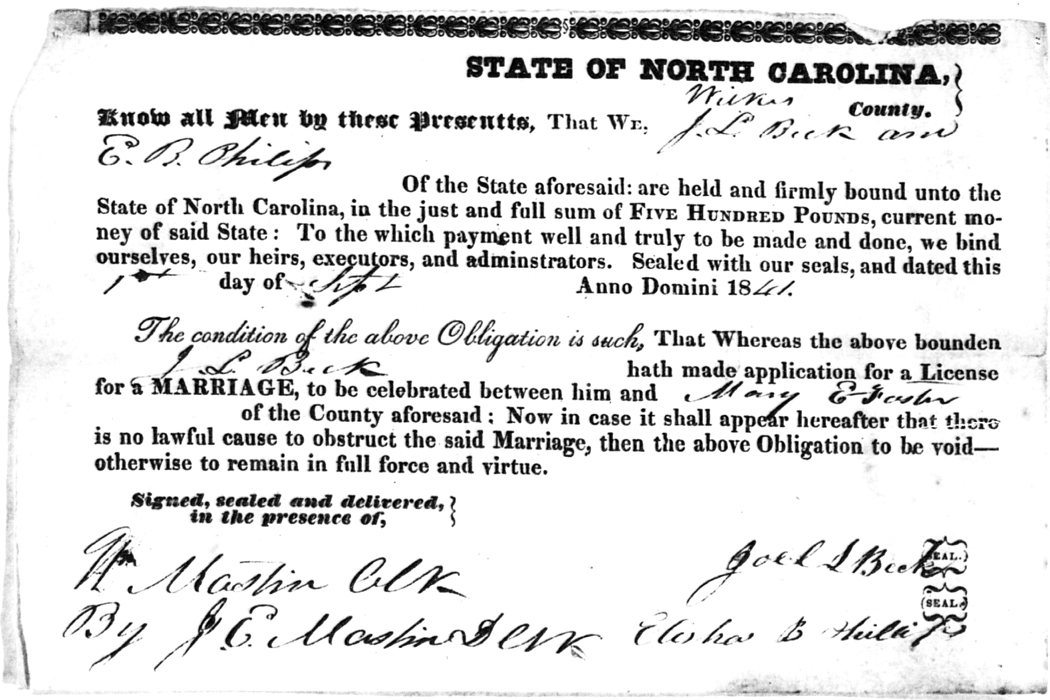 STATE OF NORTH CAROLINA,
Wilkes County.
Know all Men by these Presentts, That We, J. L. Beck and
E. B. Philips
Of the State aforesaid: are held and firmly bound unto the
State of North Carolina, in the just and full sum of Five Hundred Pounds, current mo-
ney of said State: To the which payment well and truly to be made and done, we bind
ourselves, our heirs, executors, and adminstrators. Sealed with our seals, and dated this
1st day of Sept Anno Domini 1841.
The condition of the above Obligation is such, That Whereas the above bounden
J L Beck hath made application for a License
for a MARRIAGE, to be celebrated between him and Mary E Foster
of the County aforesaid: Now in case it shall appear hereafter that there
is no lawful cause to obstruct the said Marriage, then the above Obligation to be void—
otherwise to remain in full force and virtue.
Signed, sealed and delivered,
in the presence of,
Mastin Clk Joel L Beck SEAL.
By J. E. Mastin D Clk Elisha B (SEAL.)